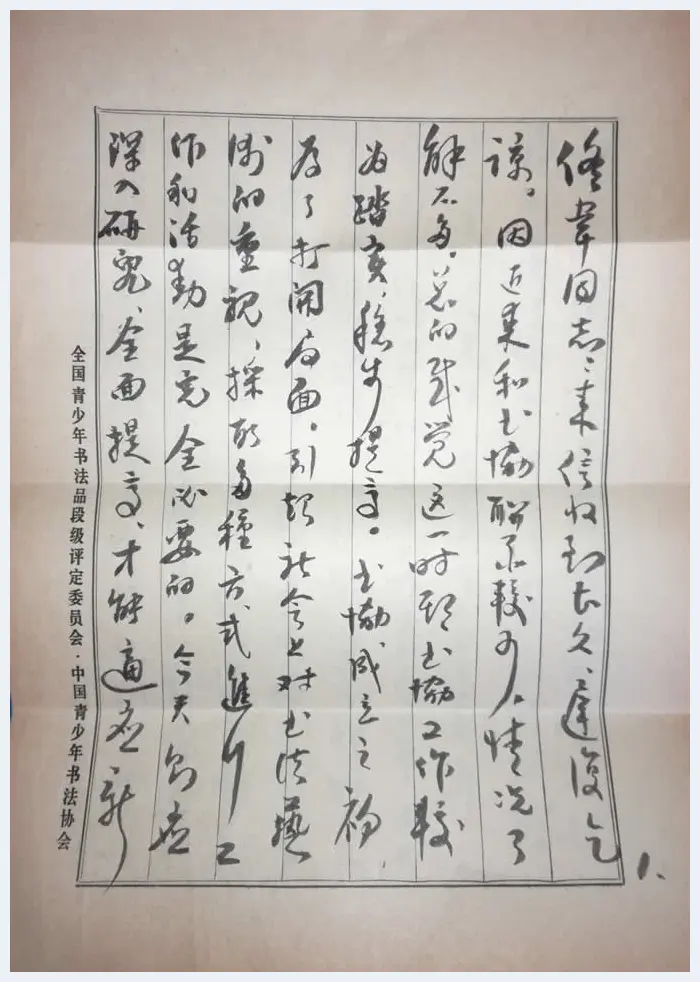 佟韦同志：来信收到长久，迟复乞
谅。因近来和书协联系较少，情况了
解不多。总的感觉这一时期书协工作较
为踏实，稳步提高。书协成立之初，
为了打开局面，引起社会上对书法艺
术的重视，采取多种方式进行工
作和活动是完全必要的。今天则应
深入研究，全面提高，才能适应新
1.
全国青少年书法品段级评定委员会·中国青少年书法协会